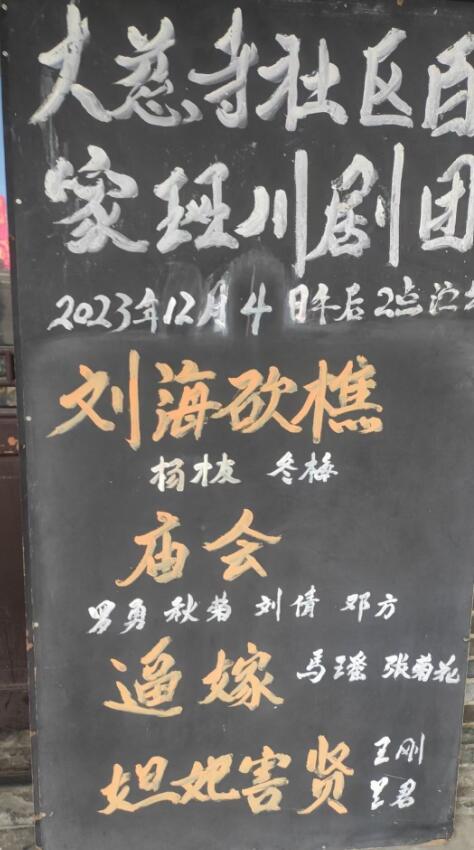 大慈寺社区
家班川剧团
2023年12月4日午后2点
刘海砍樵
杨枝 冬梅
庙会
男勇 秋菊 刘倩 邓方
逼嫁
马瑶 张菊花
妲妃害贤
王刚
兰君